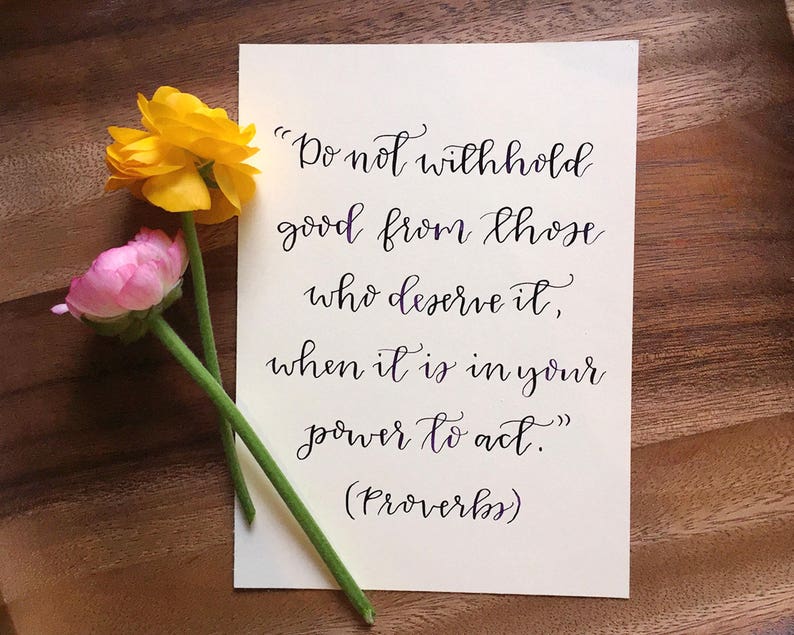 “Do not withhold
good from those
who deserve it,
when it is in your
power to act.”
(Proverbs)